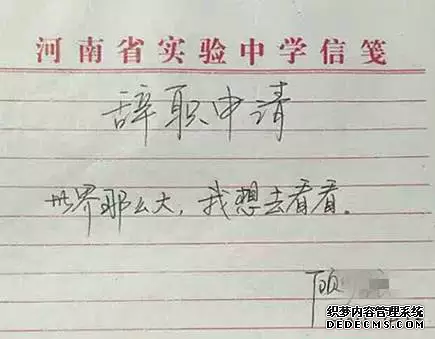 河南省实验中学信笺
辞职申请
世界那么大，我想去看看。
顾
织梦内容管理系统
DEDECMS.COM